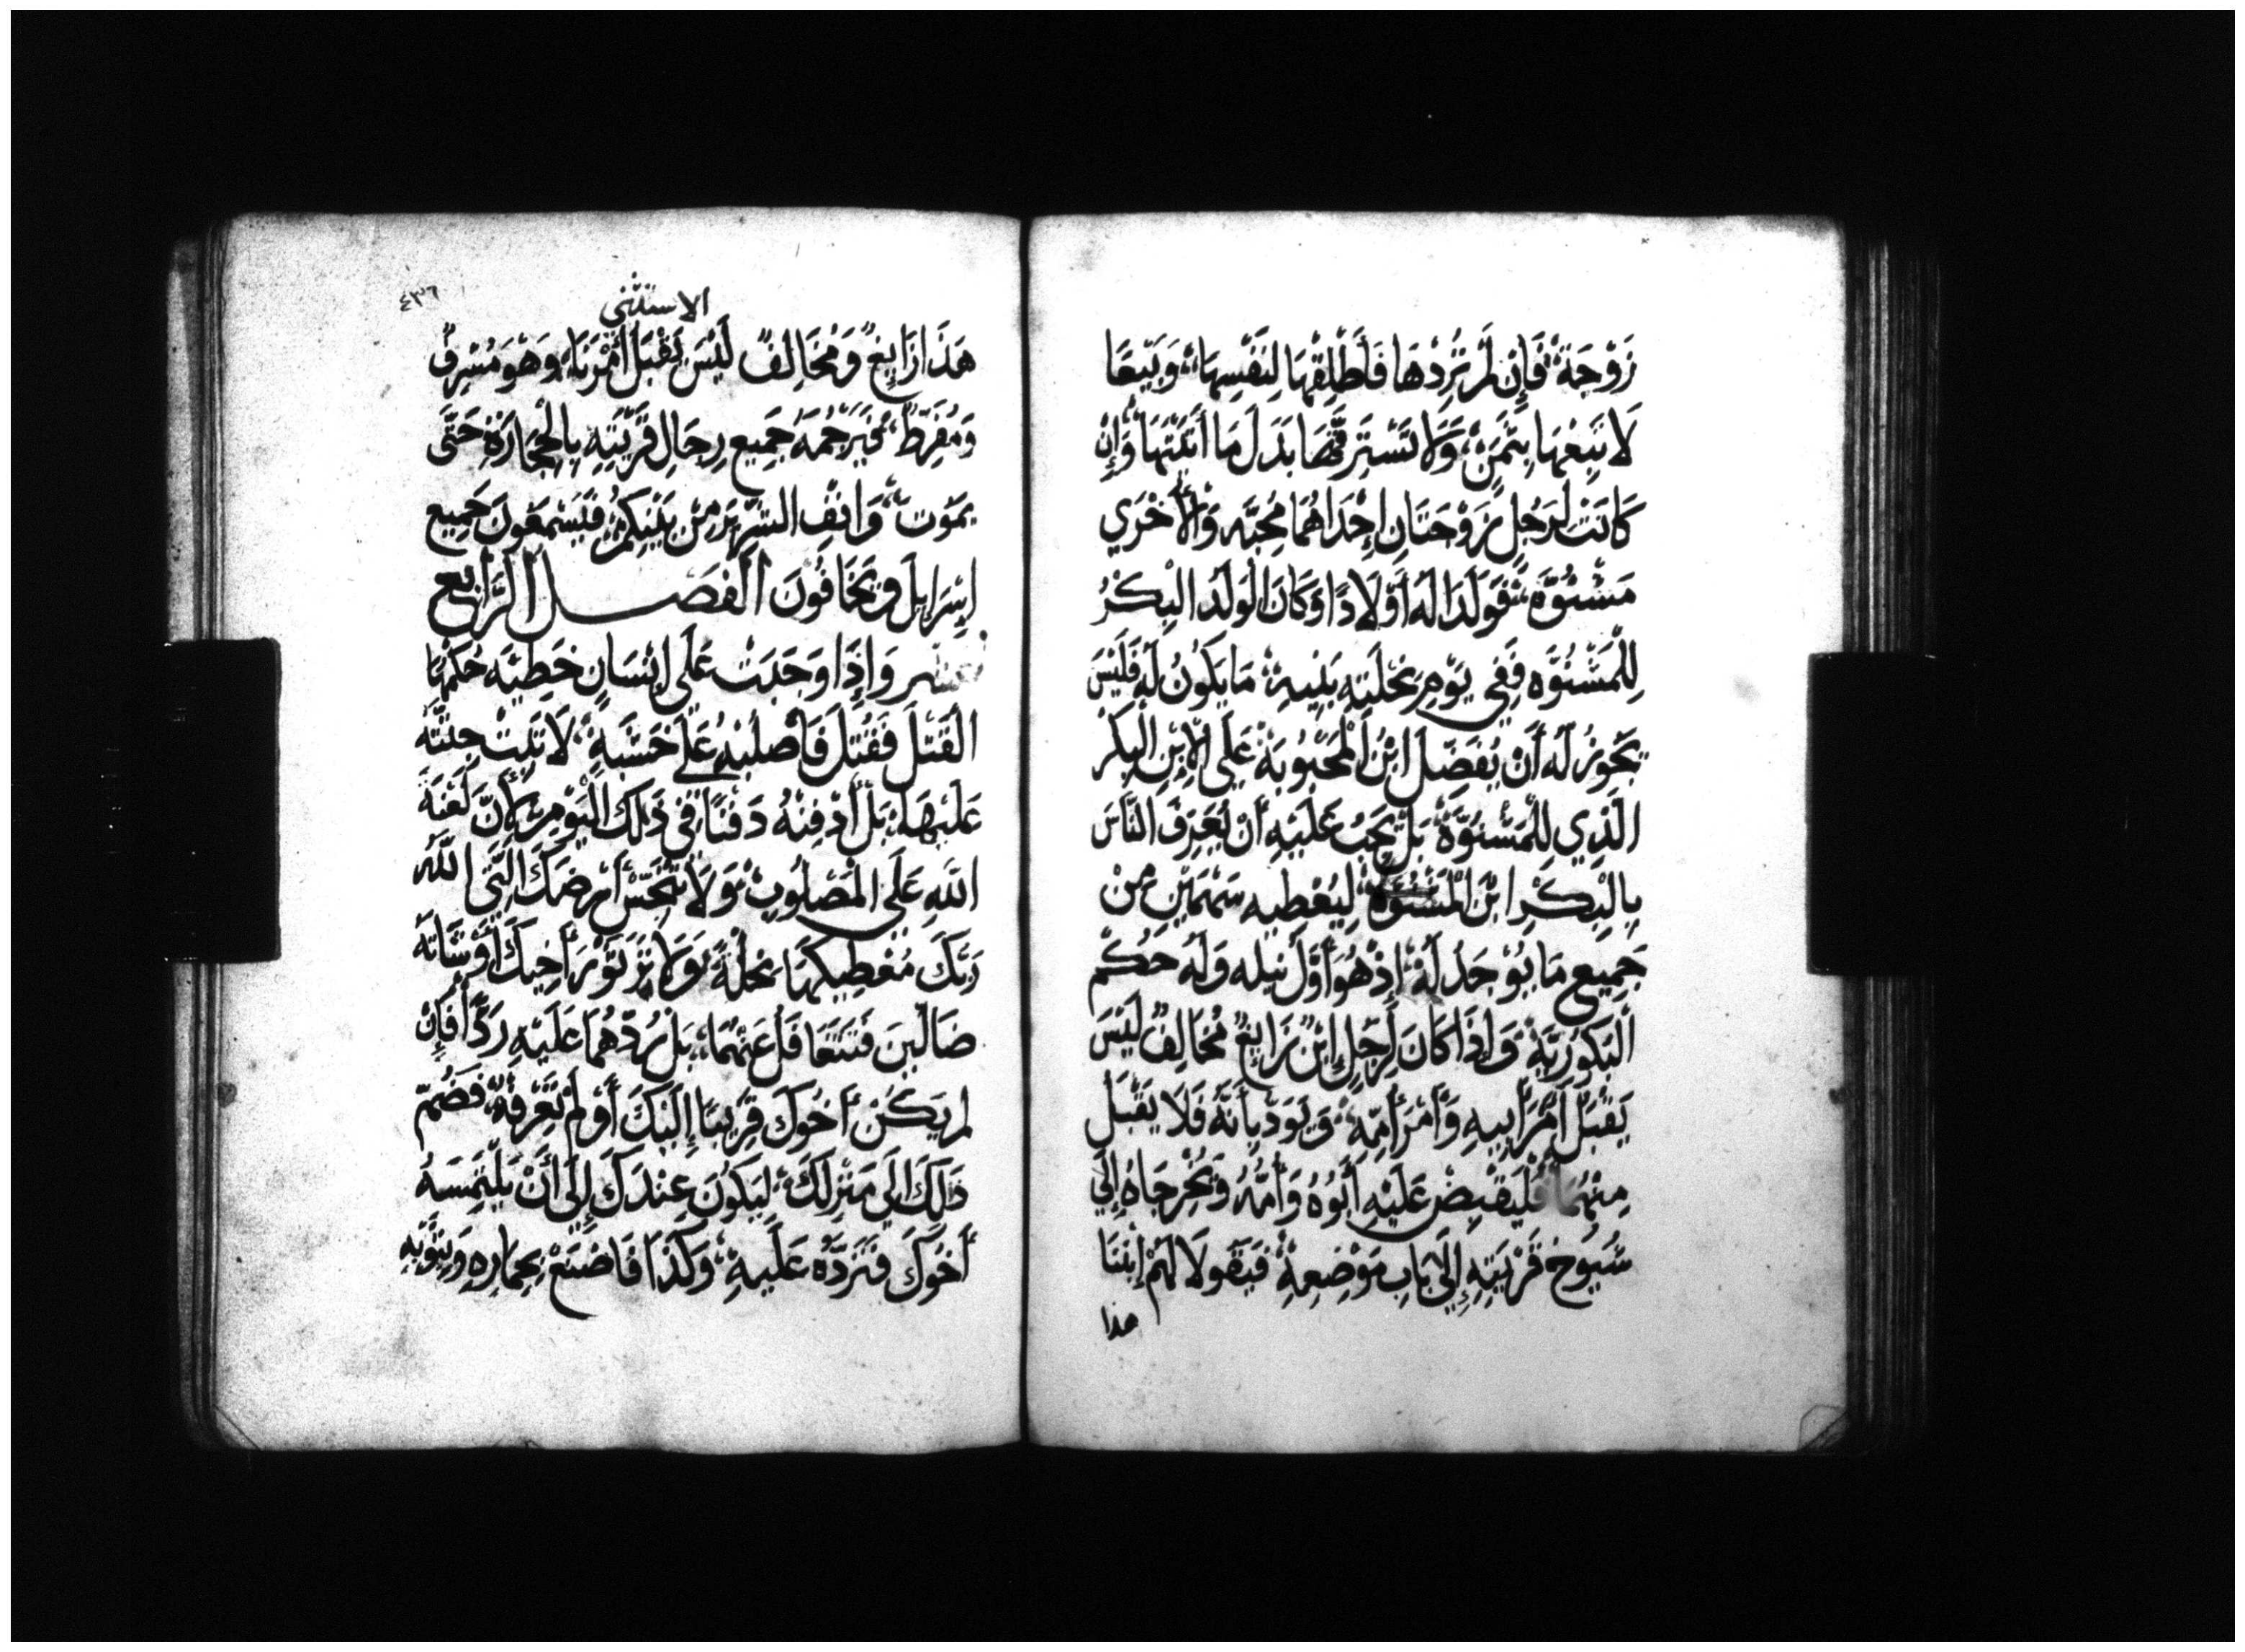 زَوْجَةً فَإِن لَّمْ تُرِدْهَا فَأَطْلِقْهَا لِنَفْسِهَا، وَبَيْعًا
لَا تَبِعْهَا بِثَمَنٍ، وَلَا تَسْتَرِقَّهَا بَدَلَ مَا أَتَيْتَهَا وَإِنْ
كَانَتْ لِرَجُلٍ زَوْجَتَانِ إِحْدَاهُمَا مُحِبَّه وَالْأُخْرَي
مَشْنُوَّه، فَوَلَدَا لَهُ أَوْلَادًا وَكَانَ الْوَلَدُ الْبِكْرُ
لِلْمَشْنُوَّه فَفِي يَوْمِ نِحْلَتِهِ بَنِيهِ، مَا يَكُونُ لَهُ فَلَيْسَ
يَجُوزُ لَهُ أَنْ يُفَضِّلَ ابْنُ الْمَحْبُوبَةِ عَلَي الْإِبْنِ الْبِكْرِ
الَّذِي لِلْمَشْنُوَّةِ، بَلْ يَجِبُ عَلَيْهِ أَنْ يُعَرِّفَ النَّاسَ
بِالْبِكْرِ ابْنَ الْمَشْنُوَّةِ لِيُعْطِيهِ سَهْمَيْنِ مِنْ
جَمِيعِ مَا يُوْجَدُ لَهُ، إِذْ هُوَ أَوَّلُ نَيْلِه وَلَهُ حُكْمُ
الْبَكُورِيَّةِ، وَإِذَا كَانَ لِرَجُلٍ إِبْنٌ زَايِغٌ مُخَالِفٌ لَيْسَ
يَقْبَلُ أَمْرَ أَبِيهِ وَأَمْرَ أُمِّهِ، وَيُوَدِّبَانِهُ فَلَا يَقْبَلُ
مِنْهُمَا فَلْيَقْبِضْ عَلَيْهِ أَبُوهُ وَأُمُّهُ وَيُخْرِجَاهُ إِلَي
شُيُوخِ قَرْيَتِهِ إِلَى بَابِ مَوْضِعِهِ فَيَقُولَا لَهُمْ إِبْنُنَا
هذا
٤٣٦
الاستثنى
هَذَا زَايِغٌ وَمُخَالِفٌ لَيْسَ يَقْبَلُ أَمْرَنَا، وَهُوَ مُسْرِفٌ
وَمُفَرِّطٌ، فَيَرْجُمَهُ جَمِيع رِجَالِ قَرْيَتِهِ بِالْحِجَارَةِ حَتَّى
يَمُوتَ، وَانْفِ الشَّرَّ مِنْ بَيْنِكُمْ فَيَسْمَعُونَ جَمِيع
إِسْرَايِلَ وَيَخَافُونَ الْفَصْــل الرَّابِع
عشر وَإِذَا وَجَبَتْ عَلَي إِنْسَانٍ خَطِيَّه حُكْمُهَا
الْقَتْلَ فَقُتِلَ فَاصْلِبْهُ عَلَي خَشَبَةٍ، لَا تَبِتْ جِثَّتُه
عَلَيْهَا، بَلْ أَدْفِنْهُ دَفْنًا فِي ذَلِكَ الْيَوْمِ، لِأَنَّ لَعْنَةَ
اللَّهِ عَلَي الْمَصْلُوبِ، وَلَا تُنَجِّسْ أَرْضَكَ الَّتِي اللَّهُ
رَبُّكَ مُعْطِيكَهَا نِحْلَةً، وَلَا تَرَ ثَوْرَ أَخِيكَ أَوْ شَاتَهُ
ضَالِّينَ فَتَتَغَافَلْ عَنْهُمَا، بَلْ رُدَّهُمَا عَلَيْهِ رَدًّا فَإِنْ
لم يَكُنْ أَخُوكَ قَرِيبًا إِلَيْكَ أَوْ لَمْ تَعْرِفْهُ، فَضُمَّ
ذَلِكَ إِلَي مَنْزِلَكَ، لِيَكُونَ عِنْدَكَ إِلَى أَنْ يَلْتَمِسَهُ
أَخُوكَ فَتَرُدَّهُ عَلَيْهِ، وَكَذَا فَاصْنَعْ بِحِمَارِهِ وَبِثَوْبِهِ